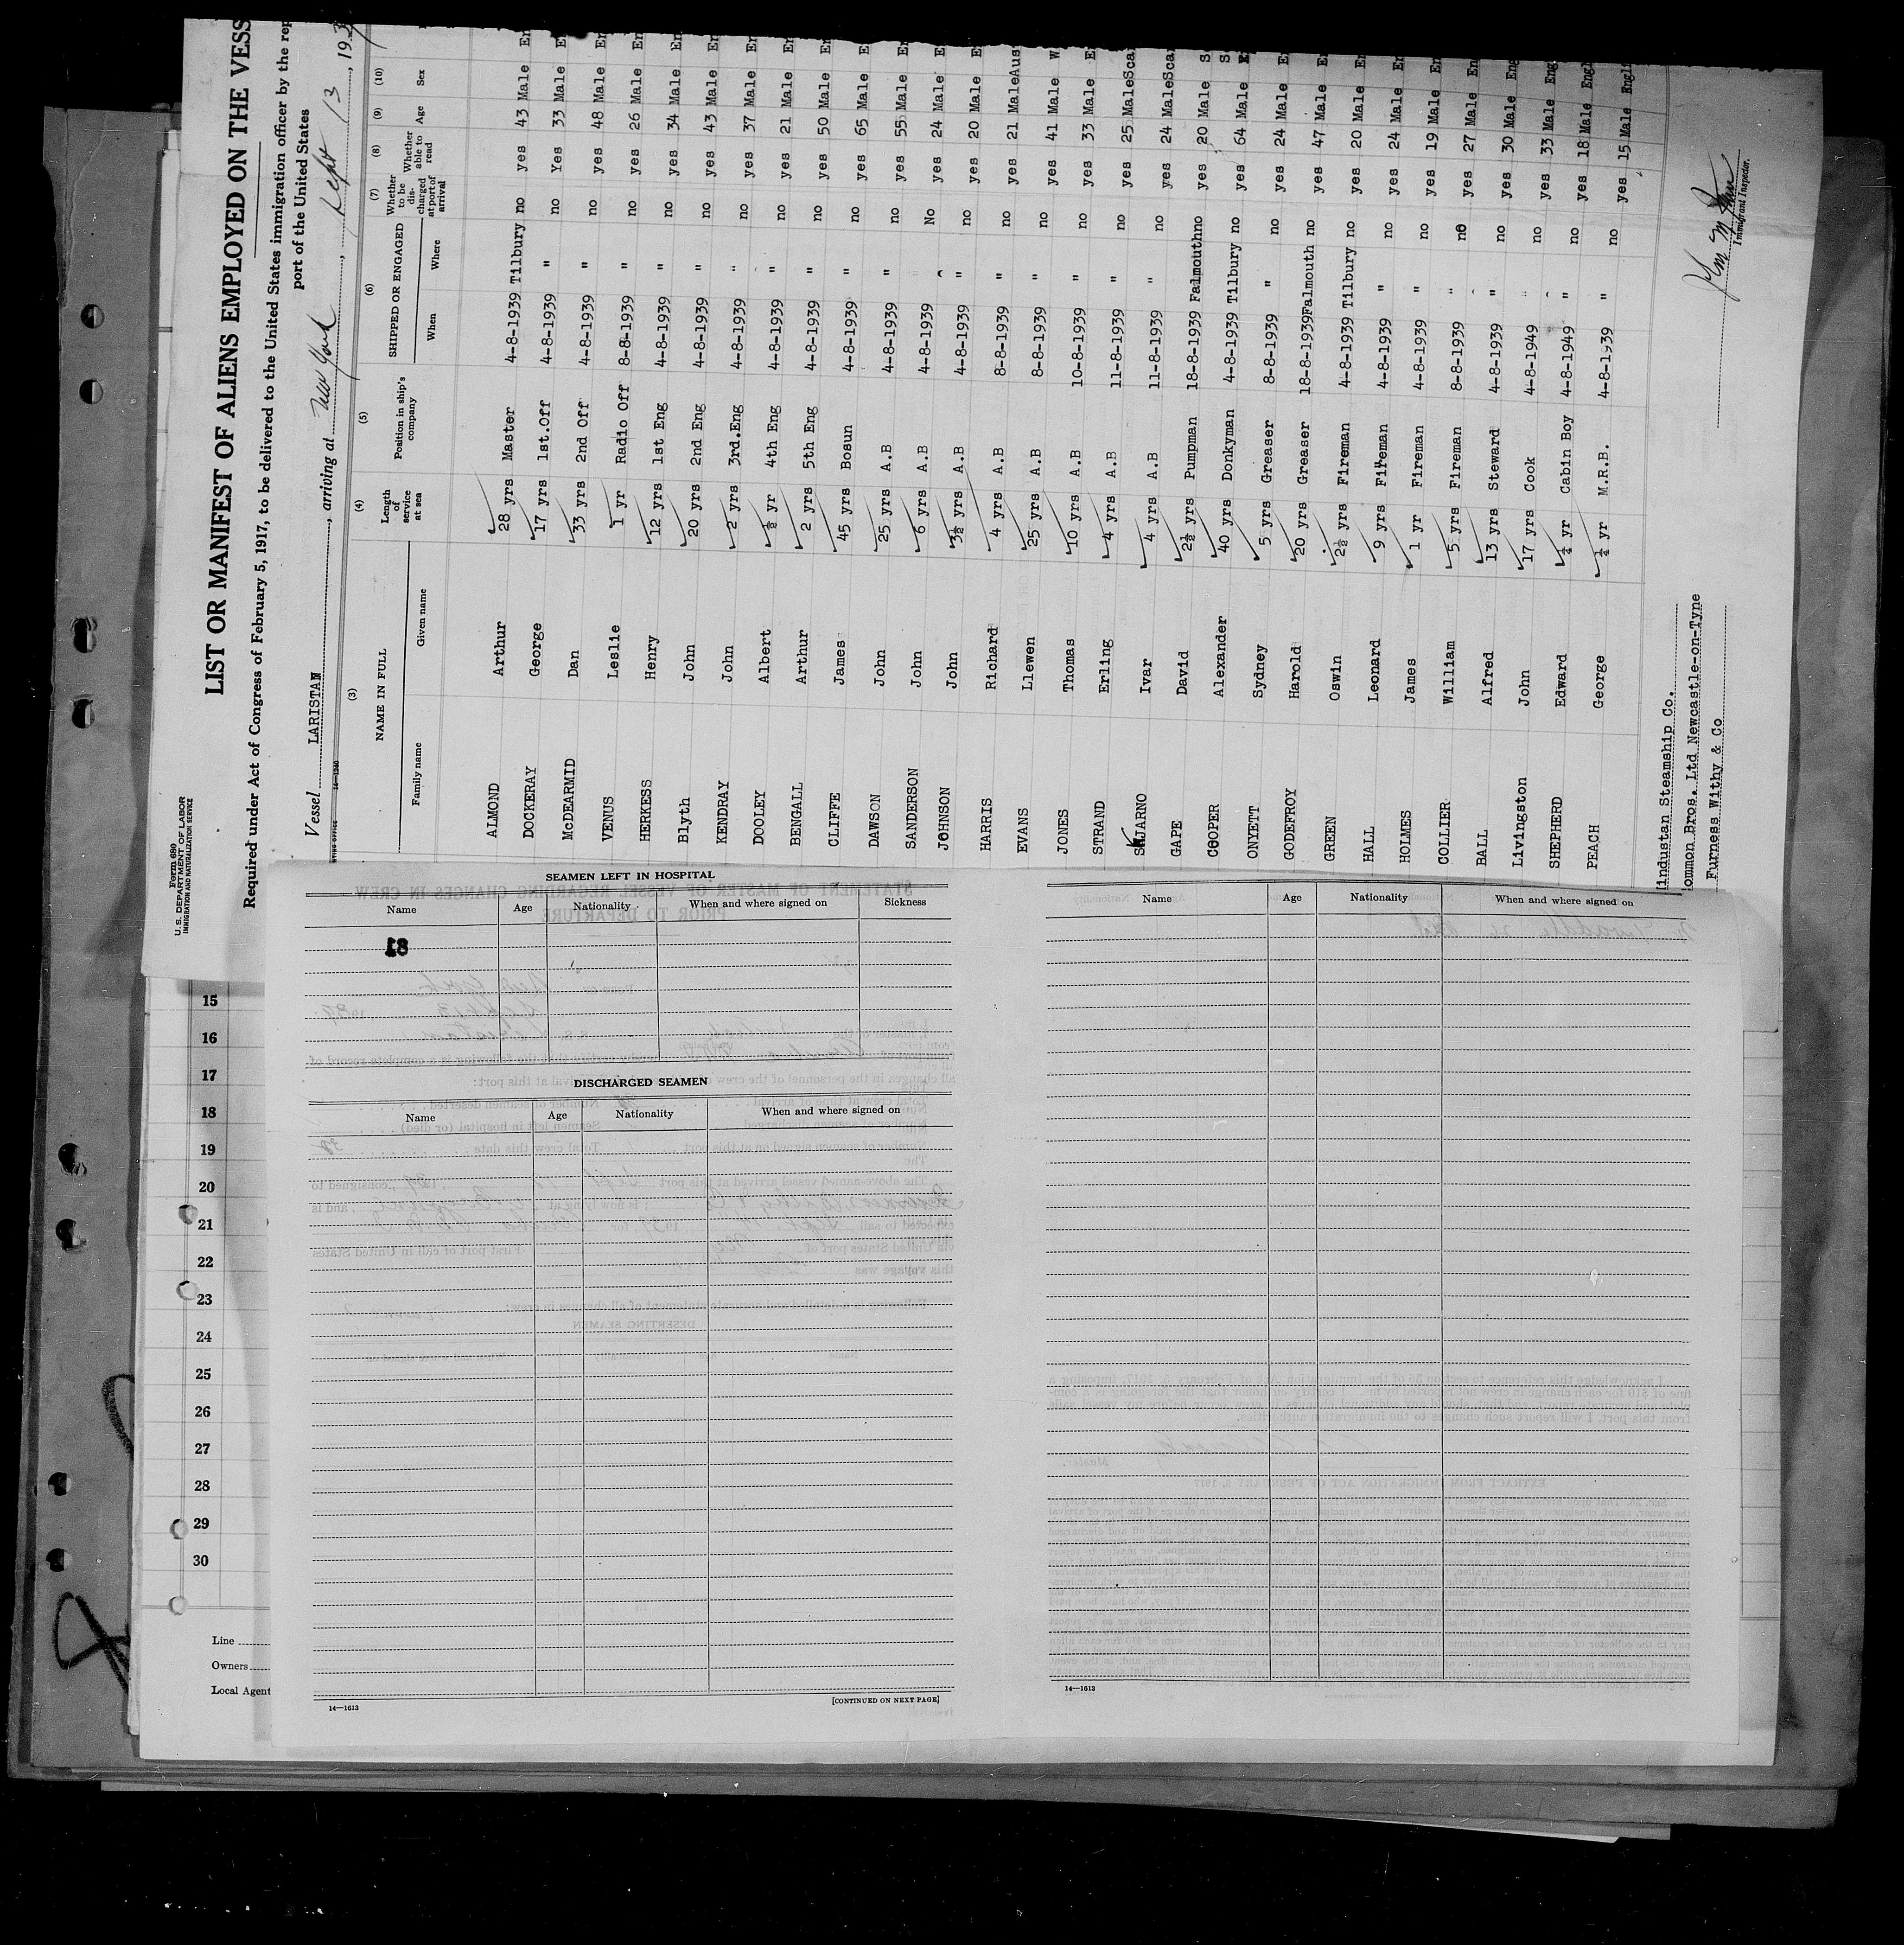 Form 680
U. S. DEPARTMENT OF LABOR
IMMIGRATION AND NATURALIZATION SERVICE
LIST OR MANIFEST OF ALIENS EMPLOYED ON THE VESS
Required under Act of Congress of February 5, 1917, to be delivered to the United States immigration officer by the rep
port of the United States
Vessel LARISTAN, arriving at New York, Sept 13, 193
(3) (4) (5) (6) (7) (8) (9) (10)
NAME IN FULL Length of service at sea Position in ship's company SHIPPED OR ENGAGED Whether to be discharged at port of arrival Whether able to read Age Sex
Family name Given name When Where
ALMOND Arthur 28 yrs Master 4-8-1939 Tilbury no yes 43 Male En
DOCKERAY George 17 yrs 1st.Off 4-8-1939 " no Yes 33 Male E
McDEARMID Dan 33 yrs 2nd Off 4-8-1939 " no yes 48 Male En
VENUS Leslie 1 yr Radio Off 8-8-1939 " no yes 26 Male En
HERKESS Henry 12 yrs 1st Eng 4-8-1939 " no yes 34 Male En
Blyth John 20 yrs 2nd Eng 4-8-1939 " no yes 43 Male En
KENDRAY John 2 yrs 3rd.Eng 4-8-1939 " no yes 37 Male En
DOOLEY Albert ½ yr 4th Eng 4-8-1939 " no yes 21 Male En
BENGALL Arthur 2 yrs 5th Eng 4-8-1939 " no yes 50 Male En
CLIFFE James 45 yrs Bosun 4-8-1939 " no yes 65 Male E
DAWSON John 25 yrs A.B 4-8-1939 " no yes 55 Male En
SANDERSON John 6 yrs A.B 4-8-1939 No yes 24 Male E
JOHNSON John 3½ yrs A.B 4-8-1939 " no yes 20 Male E
HARRIS Richard 4 yrs A.B 8-8-1939 " no yes 21 Male Aus
EVANS Llewen 25 yrs A.B 8-8-1939 " no yes 41 Male W
JONES Thomas 10 yrs A.B 10-8-1939 " no yes 33 Male E
STRAND Erling 4 yrs A.B 11-8-1939 " no yes 25 Male Sca
SKJARNO Ivar 4 yrs A.B 11-8-1939 " no yes 24 Male Sca
GAPE David 2½ yrs Pumpman 18-8-1939 Falmouth no yes 20 Male S
COOPER Alexander 40 yrs Donkyman 4-8-1939 Tilbury no yes 64 Male
ONYETT Sydney 5 yrs Greaser 8-8-1939 " no yes 24 Male E
GODEFROY Harold 20 yrs Greaser 18-8-1939 Falmouth no yes 47 Male E
GREEN Oswin 2½ yrs Fireman 4-8-1939 Tilbury no yes 20 Male En
HALL Leonard 9 yrs Fireman 4-8-1939 " no yes 24 Male En
HOLMES James 1 yr Fireman 4-8-1939 " no yes 19 Male En
COLLIER William 5 yrs Fireman 8-8-1939 " no yes 27 Male En
BALL Alfred 13 yrs Steward 4-8-1939 " no yes 30 Male Eng
Livingston John 17 yrs Cook 4-8-1949 " no yes 33 Male Eng
SHEPHERD Edward ½ yr Cabin Boy 4-8-1949 " no yes 18 Male Engl
PEACH George ½ yr M.R.B. 4-8-1939 " no yes 15 Male Engli
Hindustan Steamship Co.
ommon Bros. Ltd Newcastle-on-Tyne
Furness Withy & Co
Immigrant Inspector.
SEAMEN LEFT IN HOSPITAL
Name Age Nationality When and where signed on Sickness
81
DISCHARGED SEAMEN
Name Age Nationality When and where signed on
14—1613
[CONTINUED ON NEXT PAGE]
Name Age Nationality When and where signed on
14—1613
15
16
17
18
19
20
21
22
23
24
25
26
27
28
29
30
Line
Owners
Local Agent